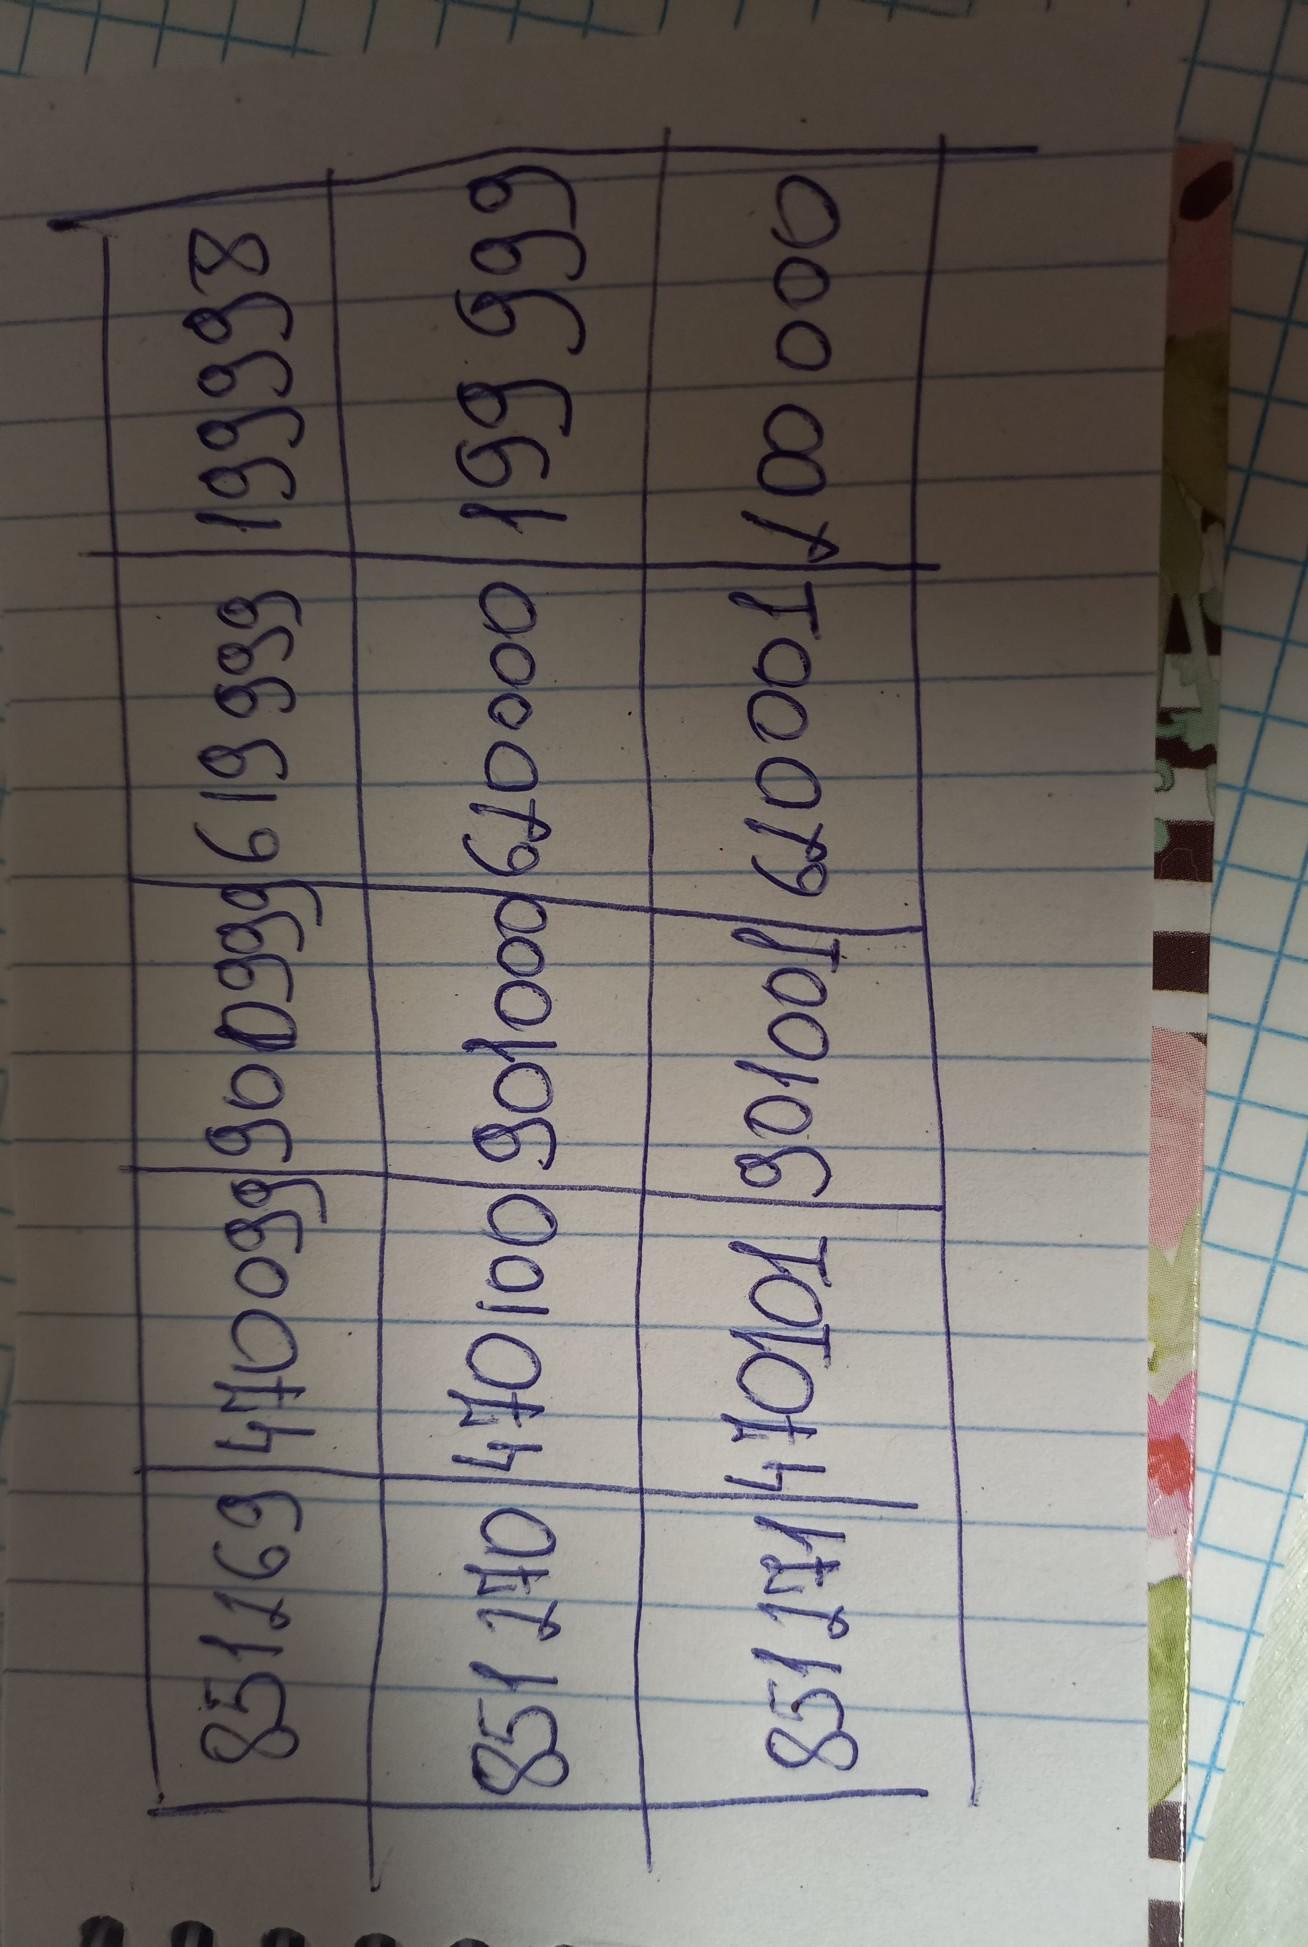 851269 470099 900999 619999 199998
851 270 470100 901000 620000 199 999
851 271 470101 901001 620001 200 000